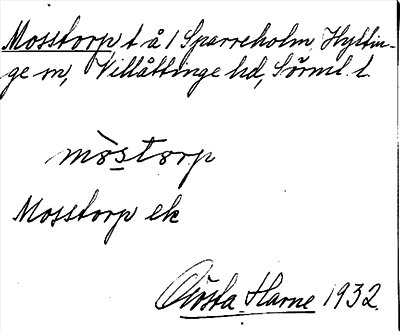 Mosstorp t å 1 Sparreholm, Hyltin-
ge sn, Villåttinge hd, Sörml. l.
mòstorp
Mosstorp ek
Gösta Harne 1932.